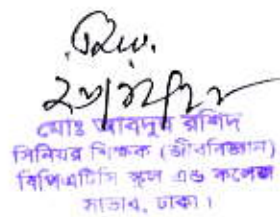 মোঃ আবদুর রশিদ
সিনিয়র শিক্ষক (জীববিজ্ঞান)
বিপিএটিসি স্কুল এন্ড কলেজ
সাভার, ঢাকা।